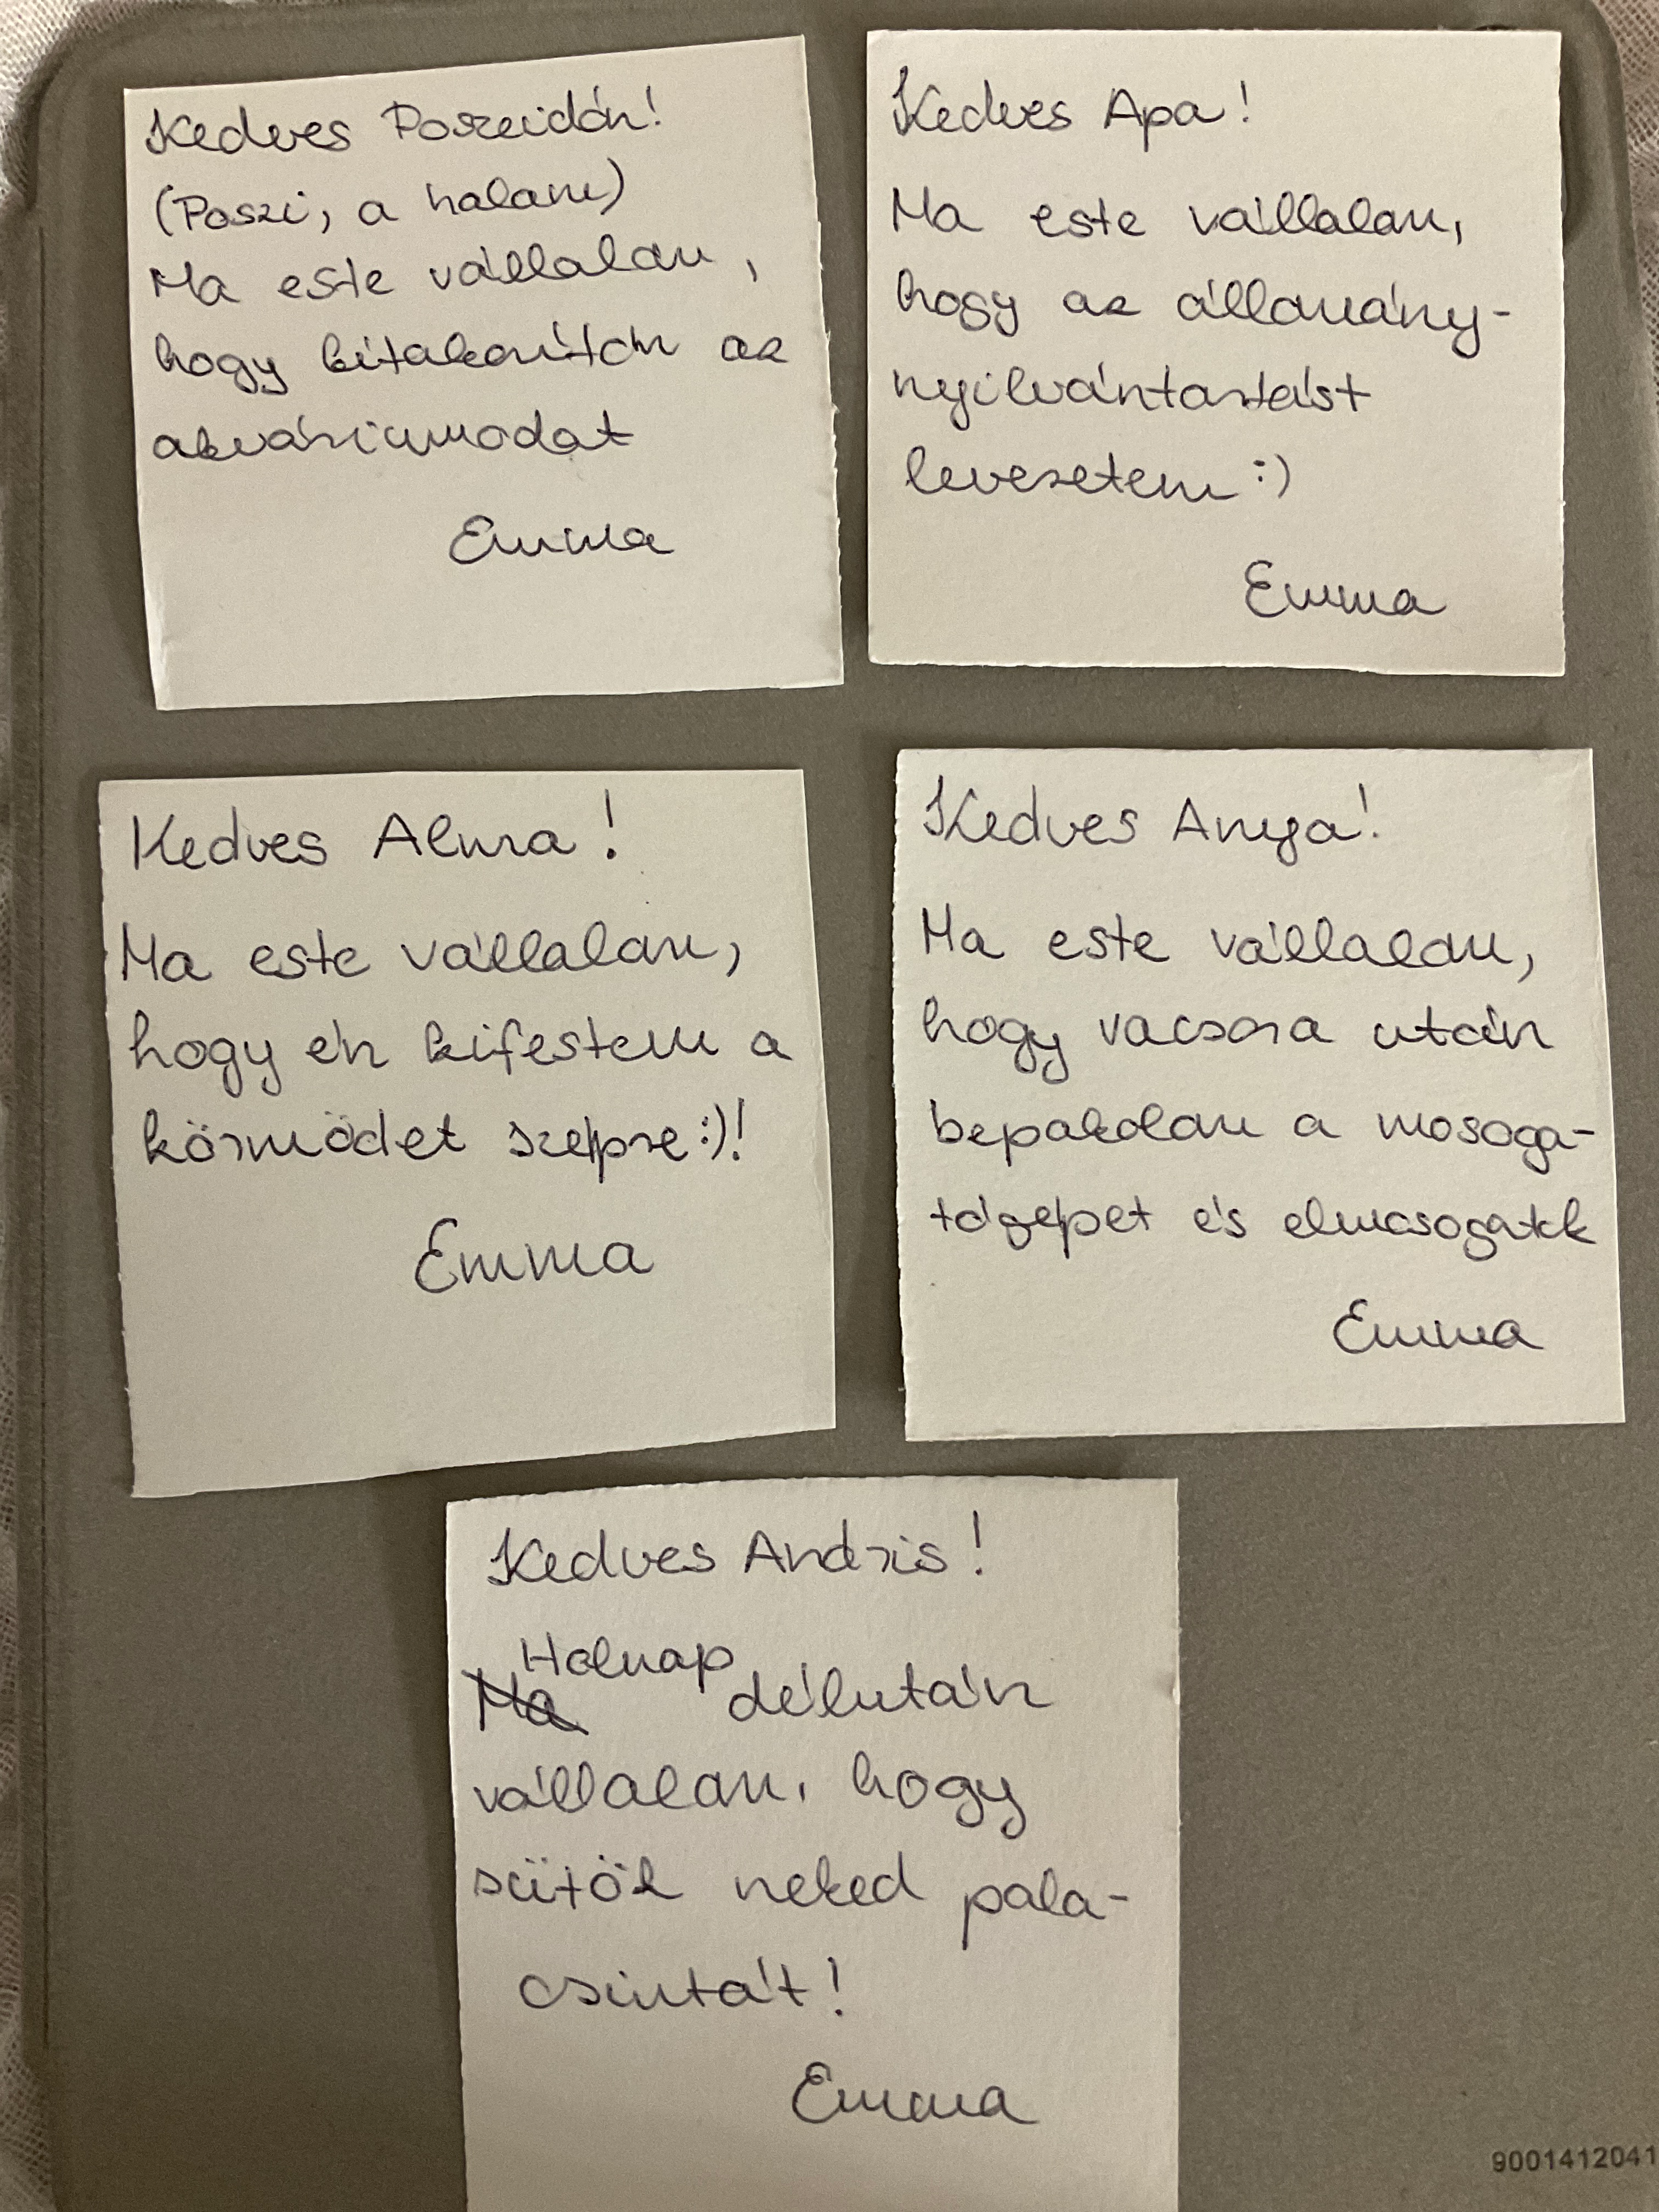 Kedves Poszeidón!
(Poszi, a halam)
Ma este vállalom,
hogy kitakarítom az
akváriumodat
Emma
Kedves Apa!
Ma este vállalom,
hogy az állomány-
nyilvántartást
levezetem :)
Emma
Kedves Alma!
Ma este vállalom,
hogy én kifestem a
körmödet szépre :)!
Emma
Kedves Anya!
Ma este vállalom,
hogy vacsora után
bepakolom a mosoga-
tógépet és elmosogatok
Emma
Kedves Andris!
Holnap
Ma délután
vállalom, hogy
sütök neked pala-
csintát!
Emma
9001412041